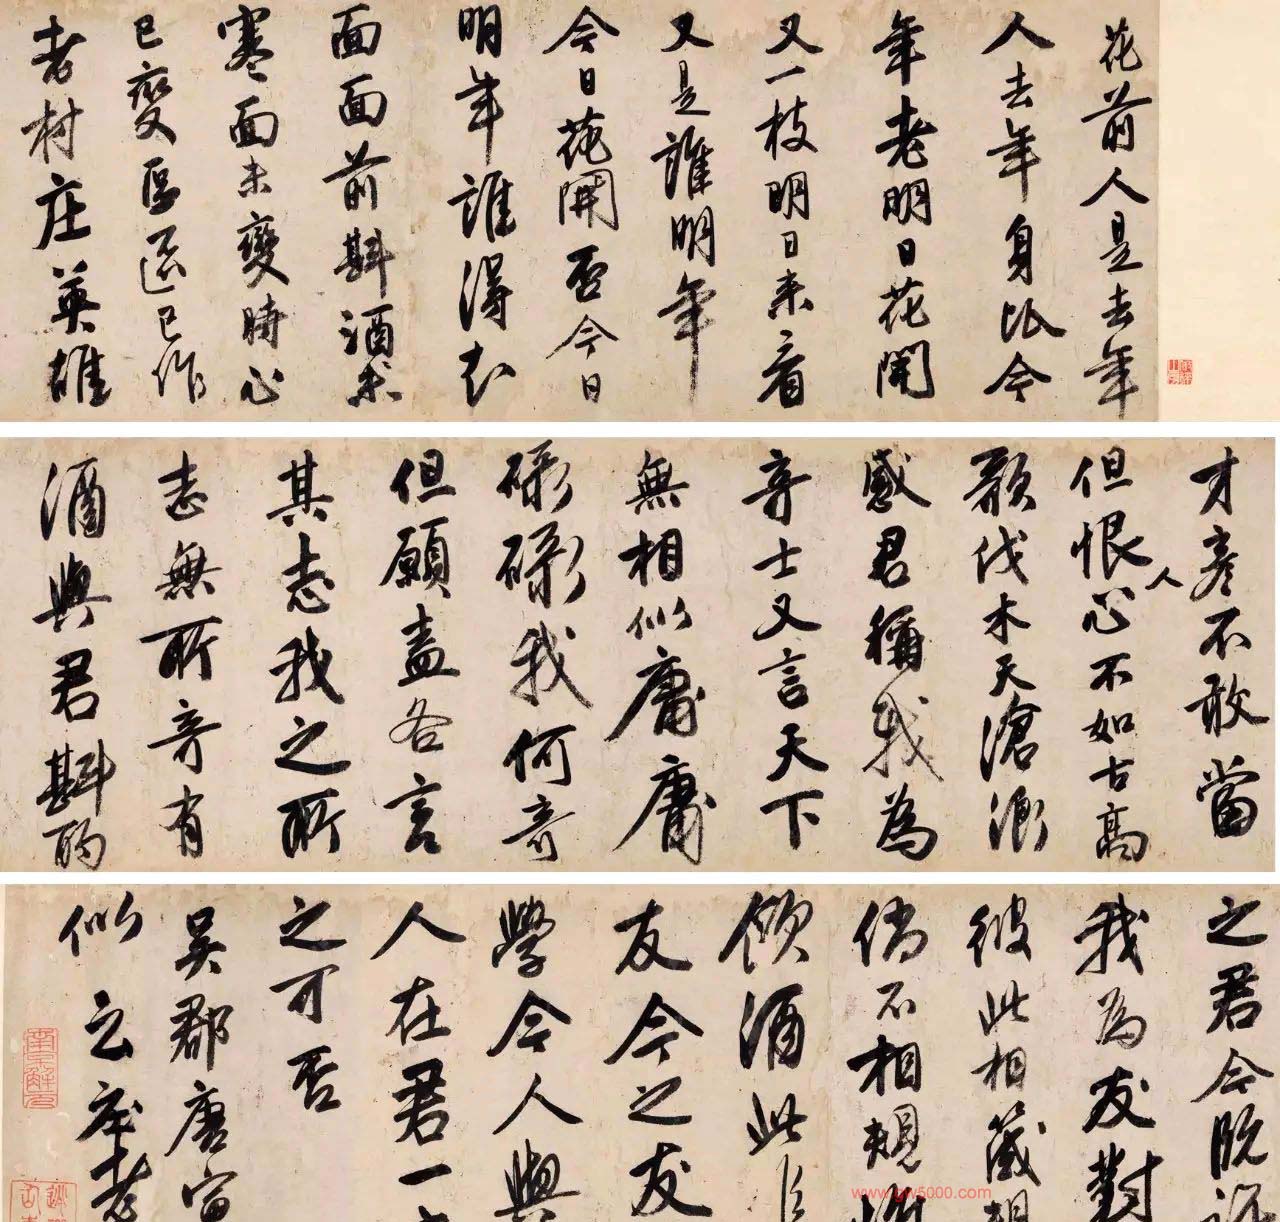 花前人是去年
人去年身比今
年老明日花開
又一枝明日来看
又是誰明年
今日花開否今日
明年誰得知
面面前斟酒未
寒面未變時心
已變區區已作
老村庄英雄
才彦不敢當
但恨人心不如古高
歌伐木天滄浪
感君稱我為
奇士又言天下
無相似庸庸
碌碌我何奇
但願盍各言
其志我之所
志無所奇有
酒與君斟酌
之君今既
我為友對
彼此相箴相
倘不相規
酒此
友今之友
學今人與
人在君一
之可否
吳郡唐寅
似
www.gw5000.com